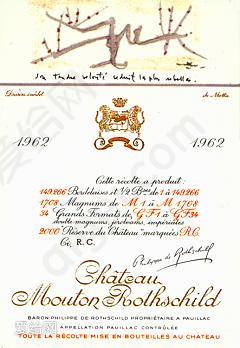 son tendre velouté séduit les plus rebelles.
Dessin inédit de Matta
1962 1962
Cette récolte a produit:
149.266 Bordelaises et ½ Bses de 1 à 149.266
1708 Magnums de M 1 à M 1708
34 Grands Formats de GF1 à GF34
double magnums, jéroboams, impériales
2000 "Réserve du Château" marquées R.C.
Ce, R.C.
Philippe de Rothschild
Château
Mouton Rothschild
BARON PHILIPPE DE ROTHSCHILD PROPRIÉTAIRE A PAUILLAC
APPELLATION PAUILLAC CONTRÔLÉE
TOUTE LA RÉCOLTE MISE EN BOUTEILLES AU CHÂTEAU